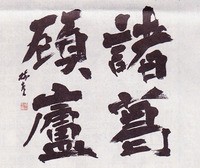 諸葛
顧廬